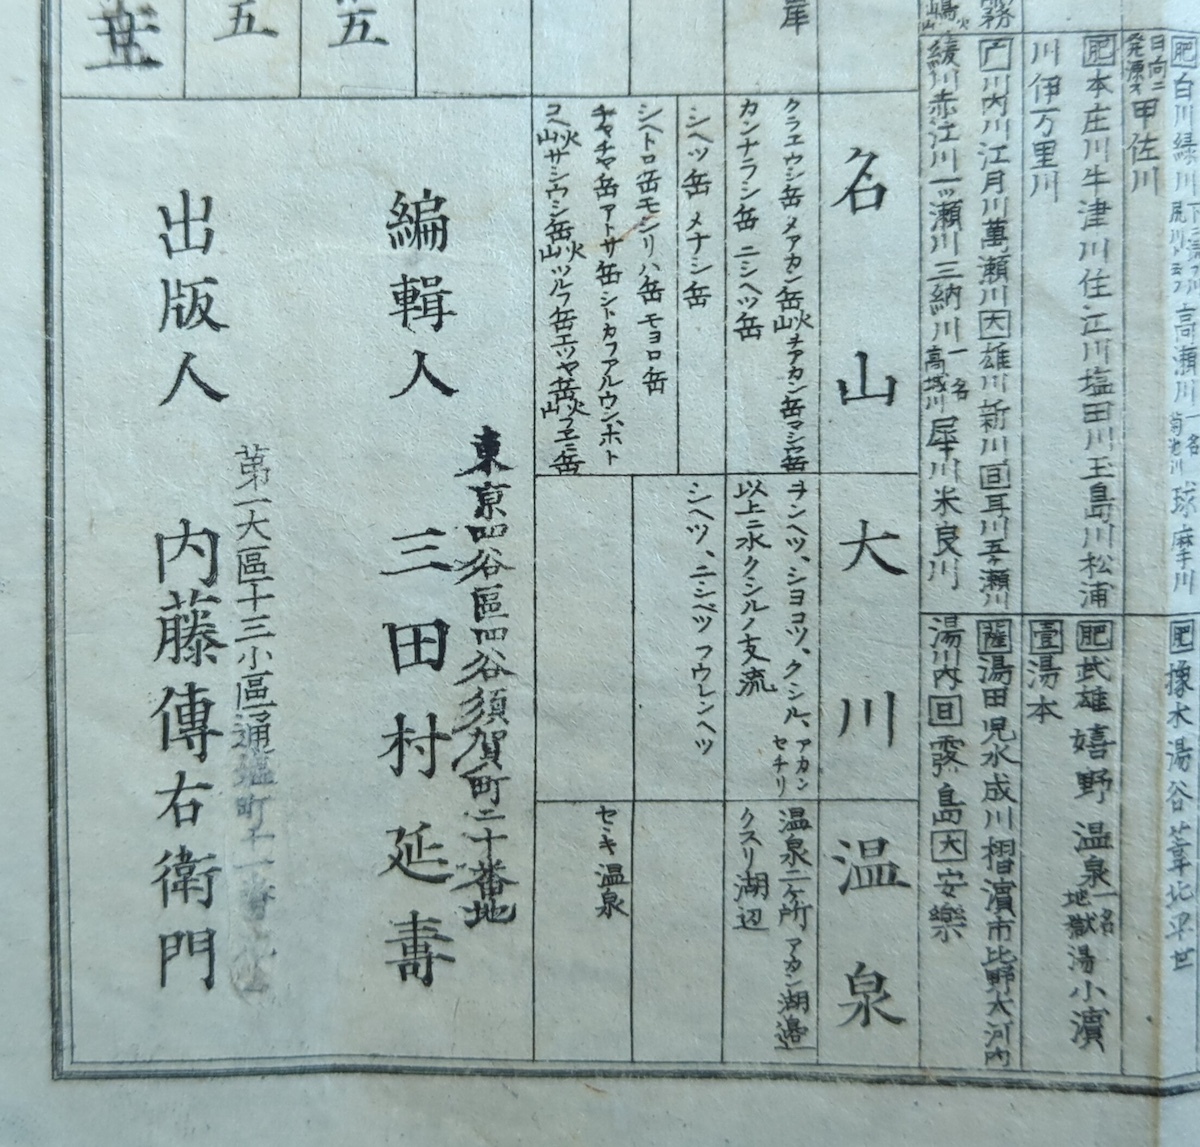 肥 白川 緑川 高瀬川 一名 菊池川 球摩川
日向ニ発源ス 甲佐川
肥 本庄川 牛津川 住江川 塩田川 玉島川 松浦
川 伊万里川
川内川 江月川 萬瀬川 大 一雄川 新川 日 耳川 五ヶ瀬川
綾川 赤江川 一ッ瀬川 三納川 一名 高城川 犀川 米良川
肥 橡木 湯谷 葦北 平世
肥 武雄 嬉野 温泉 一名 地獄湯 小濵
壹 湯本
薩 湯田 児水 成川 摺濵 市比野 大河内
湯川内 日 霧島 大 安樂
霧
岸
五
五
名山
クラエウシ岳 メアカン岳火山 ヲアカン岳 マシウ岳
カンナラシ岳 ニシヘツ岳
シヘツ岳 メナシ岳
シヘトロ岳 モシリハ岳 モヨロ岳
チャチャ岳 アトサ岳 シトカフアルウンホト
コヘ火山 サシウシ岳火山 ツルフ岳 エツヤ岳火山 フヱニ岳
大川
ヲンヘツ、シヨコツ、クシル、アカン セチリ
以上ニ水クシルノ支流
シヘツ、ニシベツ フウレンヘツ
温泉
温泉二ヶ所 アカン湖邉
クスリ湖辺
セキ温泉
東京四谷區四谷須賀町二十番地
編輯人 三田村延壽
第一大區十三小區通塩町十一番地
出版人 内藤傳右衛門